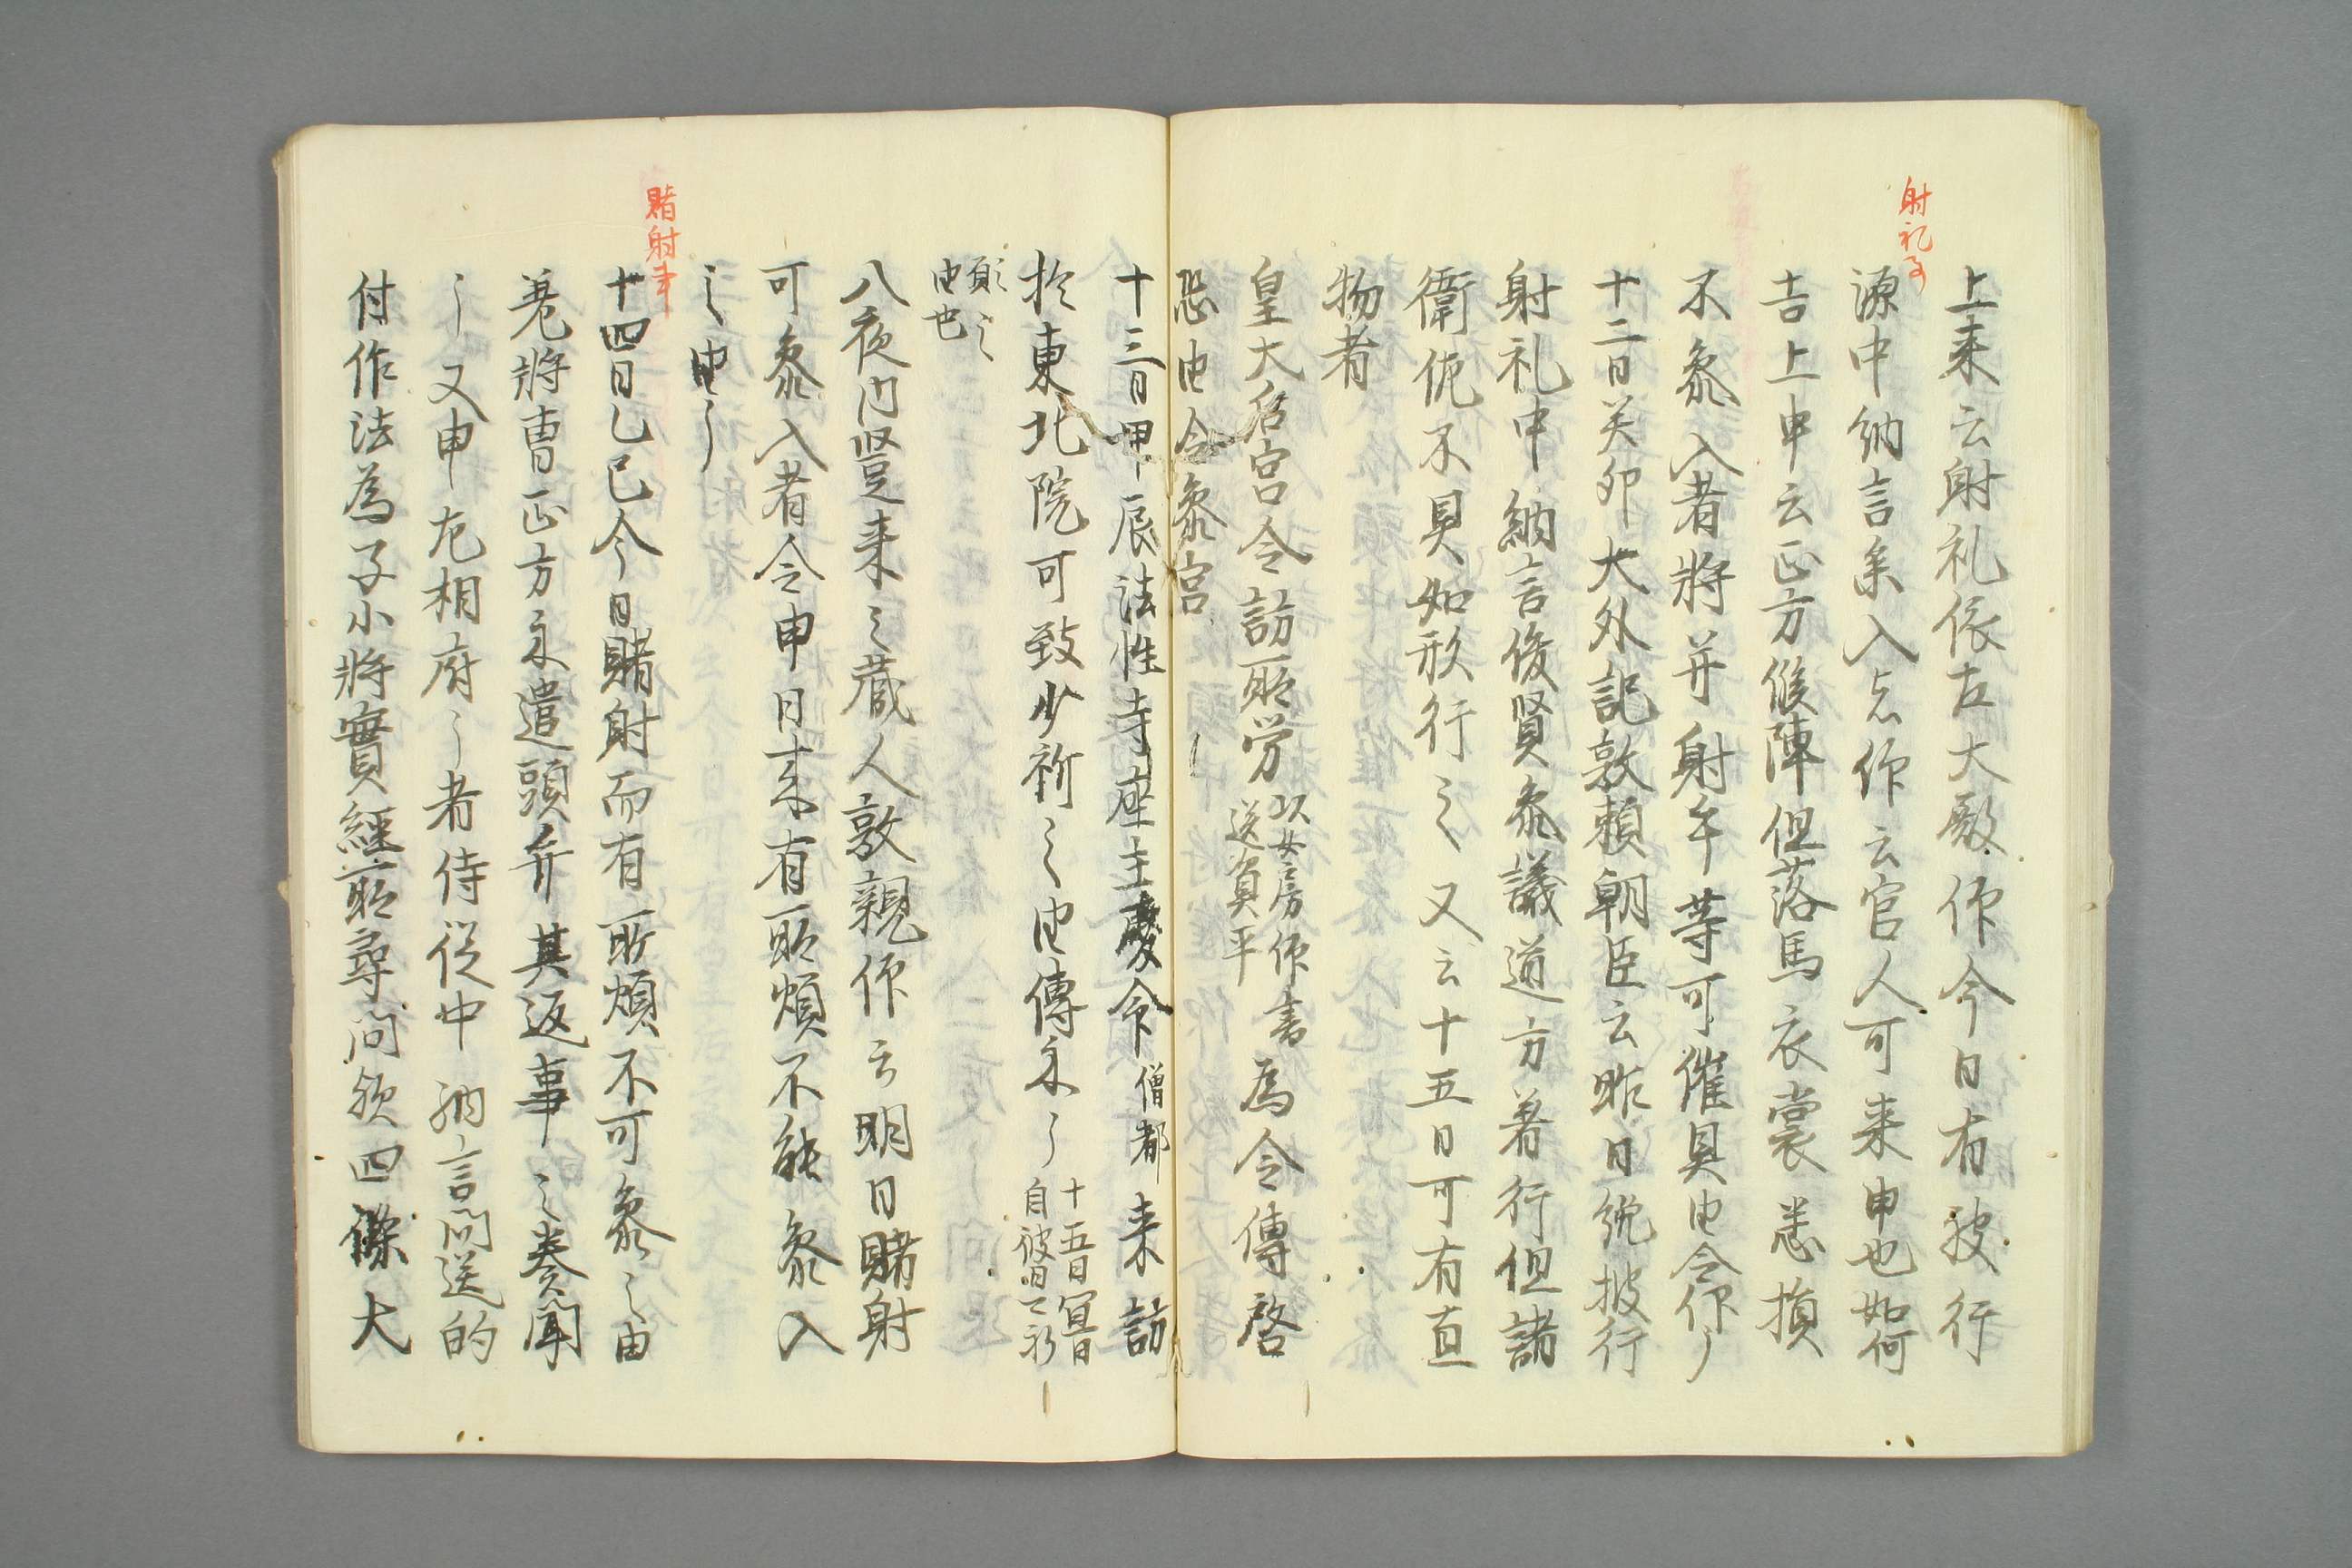 射礼事
上来云射礼依左大殿仰今日有被行
源中納言参入者仰云官人可来申也如何
吉上申云正方候陣但落馬衣裳悉損
不参入者將并射手等可催具由令仰了
十二日癸卯大外記敦頼朝臣云昨日纔披行
射礼中納言俊賢参議道方著行但諸
衛佐不具如形行之又云十五日可有直
物者
皇大后宮令訪所労以女房仰書
送資平為令傳啓
恐由令参宮
十三日甲辰法性寺座主慶命僧都来訪
於東北院可致少祈之由傳示了十五日冝日
自彼日可祈
願之
由也
八夜内竪来之蔵人敦親仰云明日賭射
可参入者令申日来有所煩不能参入
之由了
賭射事
十四日乙巳今日賭射而有所煩不可参之由
差將曹正方示遣頭弁其返事之奏聞
了又申左相府了者侍従中納言問送的
付作法為子小將實經所尋問欤四條大